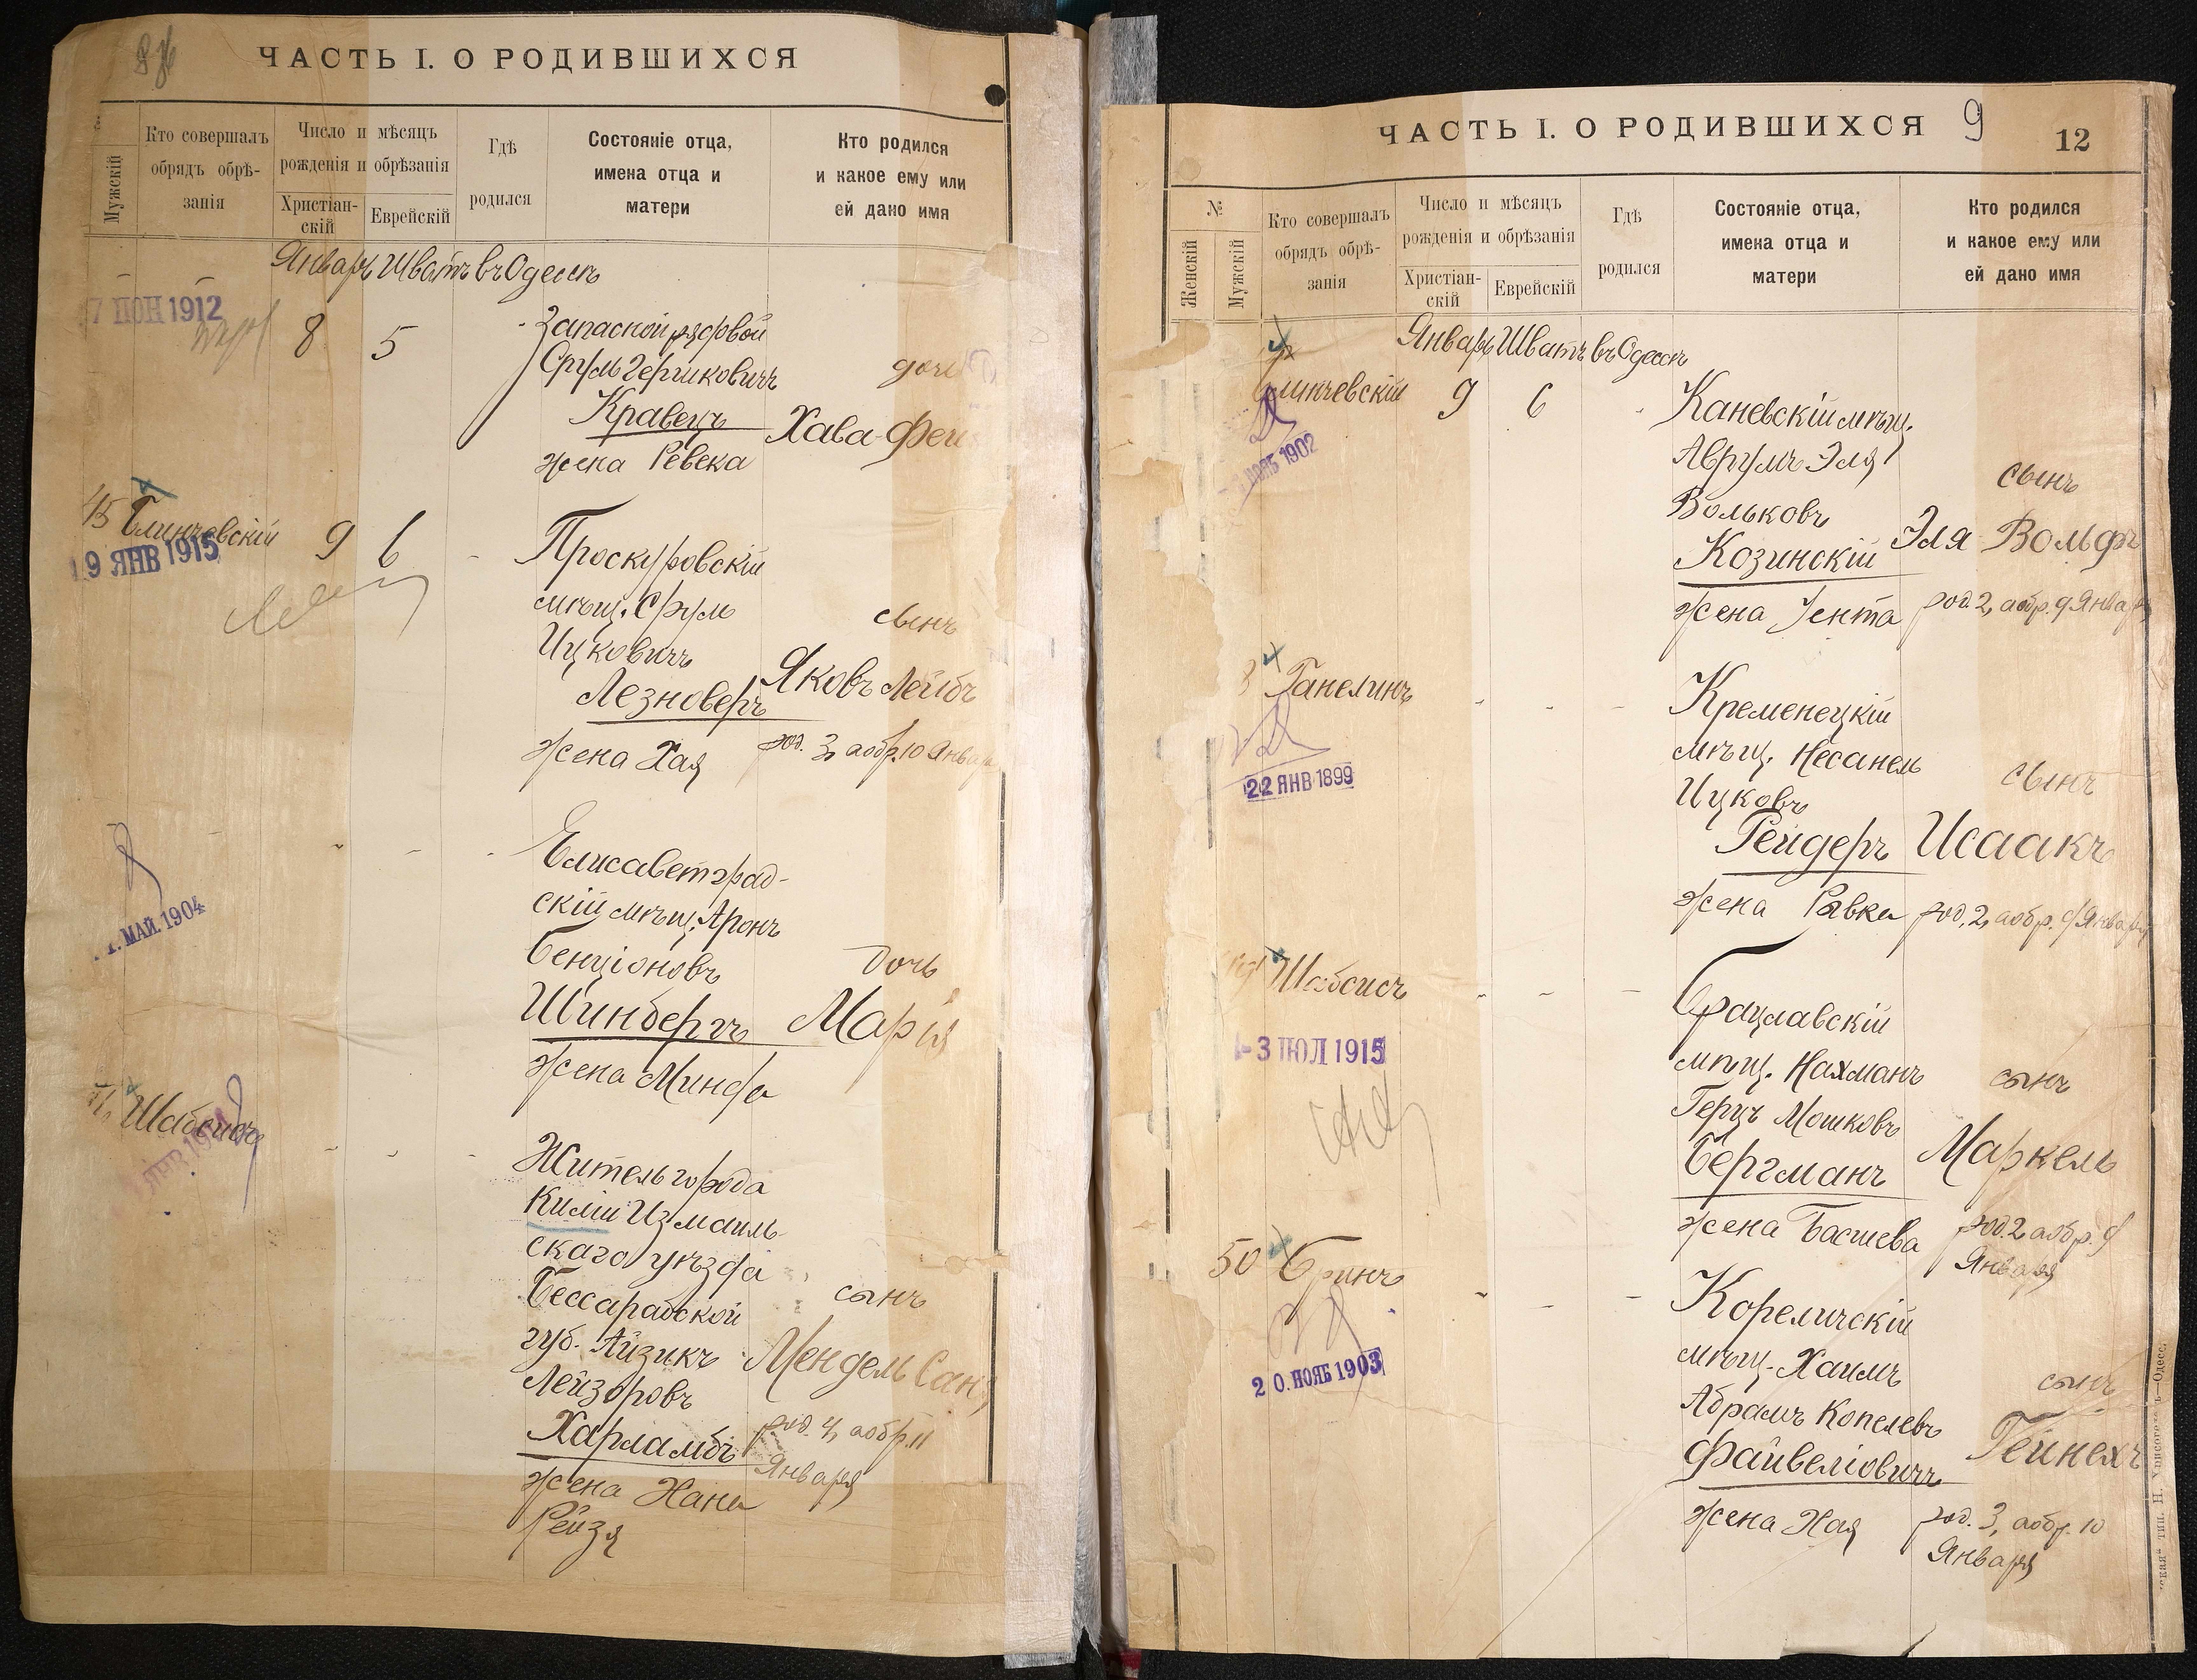 ЧАСТЬ I. О РОДИВШИХСЯ
Мужскій
Кто совершалъ обрядъ обрѣ-занія
Число и мѣсяцъ рожденія и обрѣзанія
Христіан-скій
Еврейскій
Гдѣ родился
Состояніе отца, имена отца и матери
Кто родился и какое ему или ей дано имя
Январь Шватъ въ Одессѣ
7 ІЮН 1912
8 5
Запасной рядовой
Сруль Гершковичъ
дочь
Кравецъ
Хава-Фей
жена Ревека
45 Блинчевскій
9 6
19 ЯНВ 1915
Проскуровскій
мѣщ. Сруль
сынъ
Ицковичъ
Яковъ Лейбъ
Лезноверъ
жена Хая
род. 3, аобр. 10 Января
Елисаветград-
скій мѣщ. Аронъ
МАЙ. 1904
Бенціоновъ
дочь
Шинбергъ
Марія
жена Минда
Шабсисъ
Житель города
Киліи Измаиль-
скаго уѣзда
Бессарабской
сынъ
губ. Айзикъ
Мендель Сан
Лейзоровъ
Харламбъ
род. 4, аобр. 11
Января
жена Хана
Рейзя
ЧАСТЬ I. О РОДИВШИХСЯ
9
12
№
Женскій
Мужскій
Кто совершалъ обрядъ обрѣ-занія
Число и мѣсяцъ рожденія и обрѣзанія
Христіан-скій
Еврейскій
Гдѣ родился
Состояніе отца, имена отца и матери
Кто родился и какое ему или ей дано имя
Январь Шватъ въ Одессѣ
Блинчевскій
9 6
Каневскій мѣщ.
Аврумъ Эля
сынъ
1902
Вольковъ
Эля Вольфъ
Козинскій
жена Іента
род. 2, аобр. 9 Января
Ганелинъ
Кременецкій
мѣщ. Несанель
сынъ
22 ЯНВ 1899
Ицковъ
Рейдеръ
Исаакъ
жена Ривка
род. 2, аобр. 9 Января
Шабсисъ
Брацлавскій
мѣщ. Нахманъ
сынъ
3 ІЮЛ 1915
Герцъ Мошковъ
Бергманъ
Маркель
жена Басшева
род. 2 аобр. 9
Января
50 Бринъ
Кореличскій
мѣщ. Хаимъ
сынъ
20. НОЯБ 1903
Абрамъ Копелевъ
Гейнехъ
Файвеліовичъ
жена Хая
род. 3, аобр. 10
Января